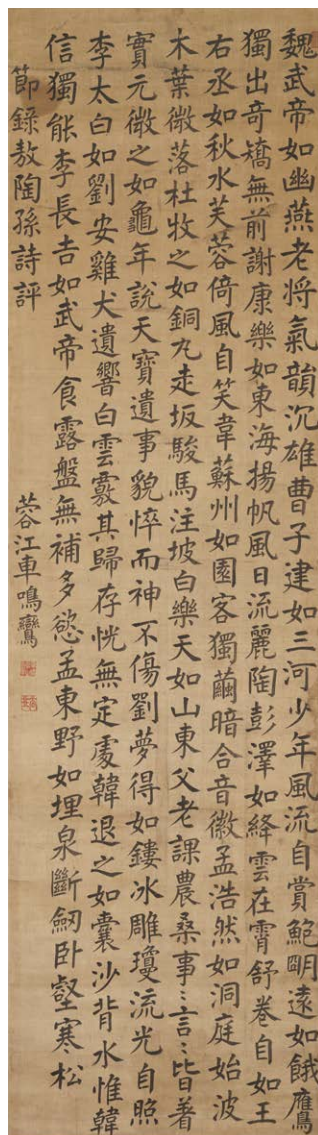 魏武帝如幽燕老将氣韻沉雄曹子建如三河少年風流自賞鮑明遠如餓鷹
獨出奇矯無前謝康樂如東海揚帆風日流麗陶彭澤如絳雲在霄舒卷自如王
右丞如秋水芙蓉倚風自笑韋蘇州如園客獨繭暗合音徽孟浩然如洞庭始波
木葉微落杜牧之如銅丸走坂駿馬注坡白樂天如山東父老課農桑事〻言〻皆著
實元微之如龜年說天寶遺事貌悴而神不傷劉夢得如鏤冰雕瓊流光自照
李太白如劉安雞犬遺響白雲覈其歸存恍無定處韓退之如囊沙背水惟韓
信獨能李長吉如武帝食露盤無補多慾孟東野如埋泉斷劒卧壑寒松
節錄敖陶孫詩評
蓉江車鳴鸞